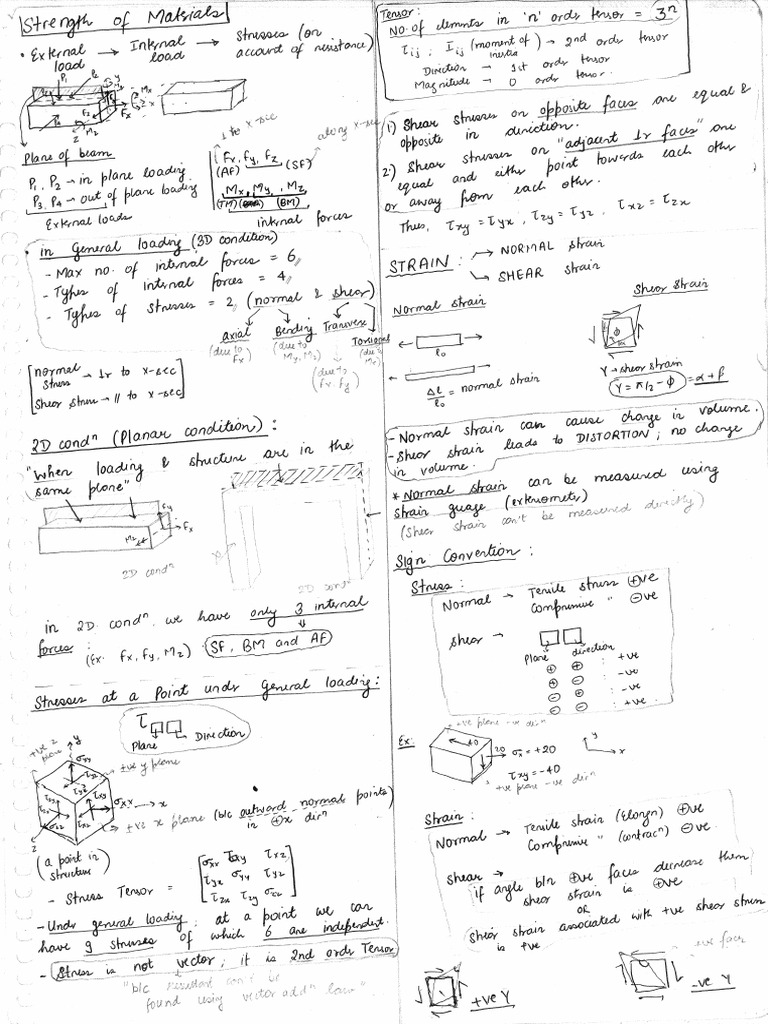 Strength of Materials
• External load → Internal load → Stresses (on account of resistance)
P1
P2
y
Mx
Fx
Fz
Mz
z
⊥ to x-sec
along x-sec
Plane of beam
P1, P2 → in plane loading
P3, P4 → out of plane loading
External loads
(Fx, Fy, Fz
(AF) (SF)
Mx, My, Mz
(TM) (BM)
internal forces
• in General loading (3D condition)
- Max no. of internal forces = 6
- Types of internal forces = 4
- Types of stresses = 2 (normal & shear)
axial (due to Fx)
Bending (due to My, Mz)
Transverse (due to Fx. Fy)
Torsional (due to Mx)
[normal stress → ⊥r to x-sec
Shear stress → // to x-sec]
2D condn (Planar condition) :
"When loading & structure are in the
same plane"
Fy
Fx
Mz
2D condn
2D condn
in 2D condn we have only 3 internal
forces :
(Ex. Fx, Fy, Mz) SF, BM and AF
Stresses at a Point under General loading:
τ□□
Plane Direction
+ve z plane
y
σyy
+ve y plane
σxx → x
+ve x plane (b/c outward normal points in ⊕x dirn)
σzz
z
(a point in structure)
- Stress Tensor =
σxx τxy τxz
τyx σyy τyz
τzx τzy σzz
- Under general loading, at a point we can
have 9 stresses of which 6 are independent.
- Stress is not vector; it is 2nd order Tensor
"b/c resultant can't be
found using vector addn law"
Tensor:
No. of elements in 'n' order tensor = 3ⁿ
τij ; Iij (moment of inertia) → 2nd order tensor
Direction → 1st order tensor
Magnitude → 0 order tensor.
1) Shear stresses on opposite faces are equal &
opposite in direction.
2) Shear stresses on "adjacent ⊥r faces" are
equal and either point towards each other
or away from each other.
Thus, τxy = τyx , τzy = τyz , τxz = τzx
STRAIN : → NORMAL strain
→ SHEAR strain
Normal strain
Shear Strain
l0
Δl/l0 = normal strain
ϕ
γ → shear strain
γ = π/2 - ϕ = α + β
- Normal strain can cause change in volume.
- Shear strain leads to DISTORTION; no change
in volume.
* Normal strain can be measured using
strain guage (extensometer)
(Shear strain can't be measured directly)
Sign Convention :
Stress :
Normal → Tensile stress ⊕ve
Compressive " ⊖ve
Shear → □□
Plane direction
⊕ ⊕ : +ve
⊕ ⊖ : -ve
⊖ ⊕ : -ve
⊖ ⊖ : +ve
+ve plane -ve dirn
Ex:
40
20
σx = +20
τxy = -40
+ve plane -ve dirn
y
x
Strain :
Normal → Tensile strain (Elongn) ⊕ve
Compressive " (contracn) ⊖ve.
Shear →
if angle b/n ⊕ve faces decrease them
shear strain is ⊕ve
OR
Shear strain associated with +ve shear stress
is +ve
+ve γ
-ve γ